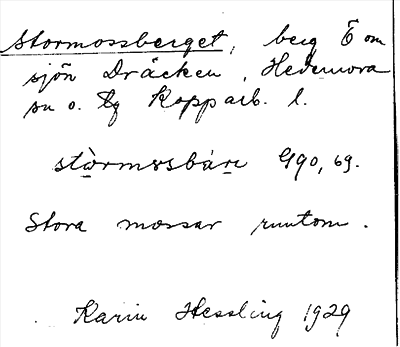 Stormossberget, berg Ö om
sjön Dräcken, Hedemora
sn o. tg Kopparb. l.
Stora mossar runtom.
Karin Hessling 1929